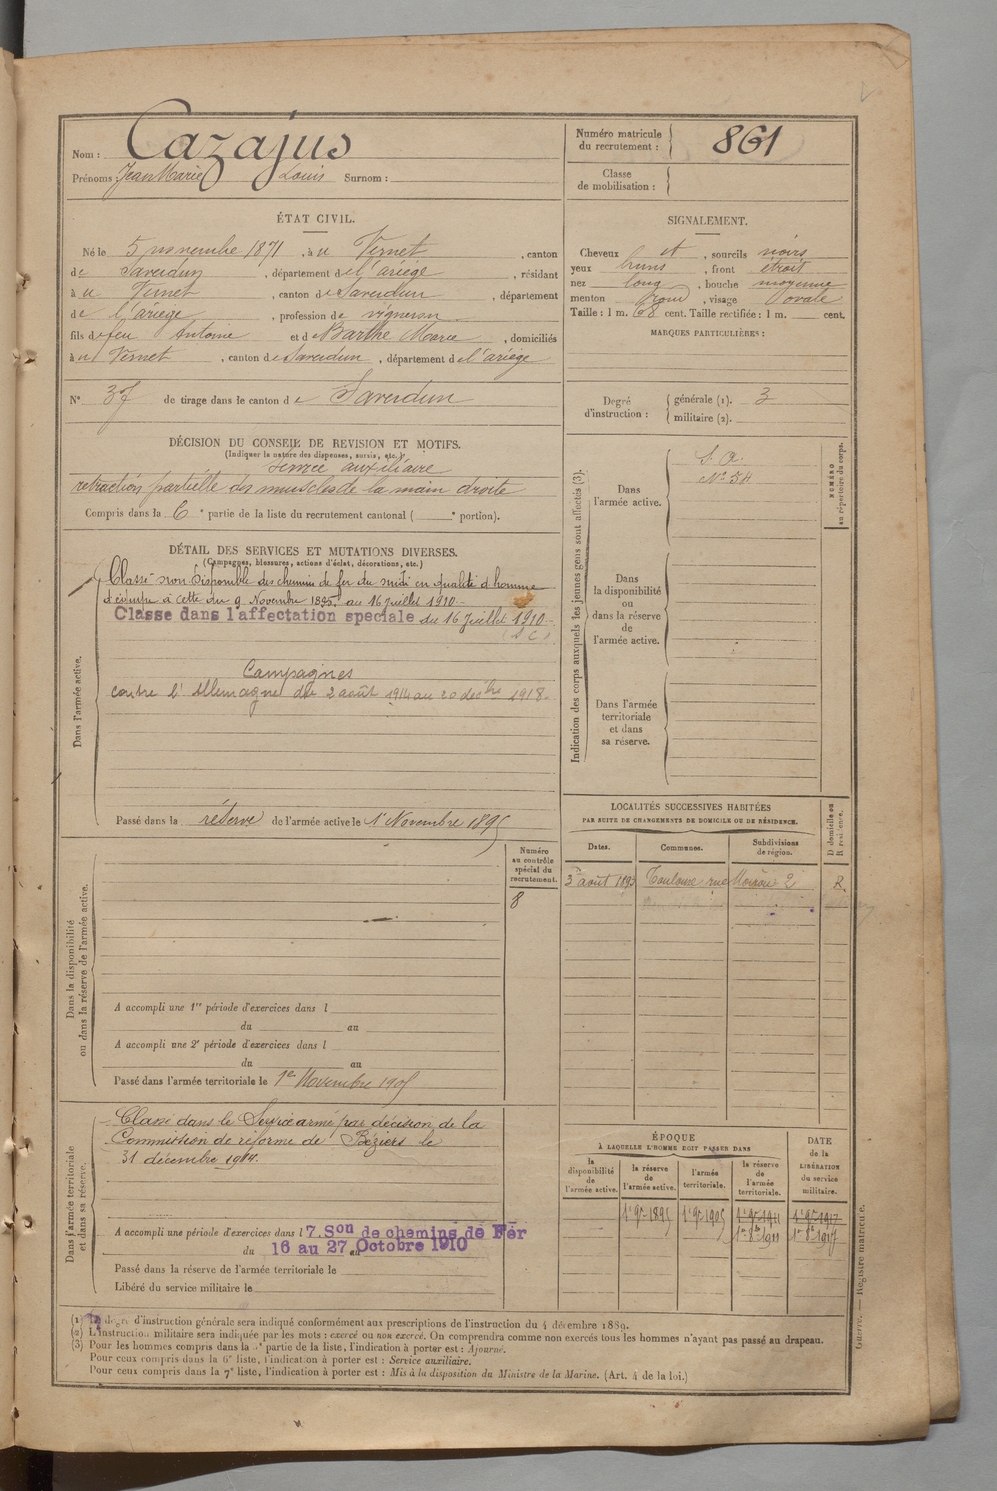 Nom : Cazajus
Prénoms : Jean Marie Louis Surnom :
Numéro matricule du recrutement : 861
Classe de mobilisation :
ÉTAT CIVIL.
Né le 5 novembre 1871, à u Vernet, canton
de Saverdun, département de l'ariège, résidant
à u Vernet, canton de Saverdun, département
de l'ariège, profession de vigneron
fils de feu Antoine et de Barthe Marie, domiciliés
à u Vernet, canton de Saverdun, département de l'ariège
N° 37 de tirage dans le canton de Saverdun
SIGNALEMENT.
Cheveux et, sourcils noirs
yeux bruns, front étroit
nez long, bouche moyenne
menton rond, visage ovale
Taille : 1 m. 68 cent. Taille rectifiée : 1 m. cent.
MARQUES PARTICULIÈRES :
Degré d'instruction : générale (1). 3
militaire (2).
DÉCISION DU CONSEIL DE REVISION ET MOTIFS.
(Indiquer la nature des dispenses, sursis, etc.)
service auxiliaire
retraction partielle des muscles de la main droite
Compris dans la 6e partie de la liste du recrutement cantonal ( e portion).
DÉTAIL DES SERVICES ET MUTATIONS DIVERSES.
(Campagnes, blessures, actions d'éclat, décorations, etc.)
Dans l'armée active.
Classé non disponible des chemins de fer du midi en qualité d'homme
d'équipe à Cette du 9 Novembre 1895 au 16 juillet 1910
Classe dans l'affectation speciale du 16 juillet 1910
Campagnes
contre l'Allemagne du 2 août 1914 au 20 decbre 1918.
Passé dans la réserve de l'armée active le 1 Novembre 1895
Indication des corps auxquels les jeunes gens sont affectés (3).
NUMÉRO au répertoire du corps.
Dans l'armée active.
S. A.
N° 54
Dans la disponibilité ou dans la réserve de l'armée active.
Dans l'armée territoriale et dans sa réserve.
LOCALITÉS SUCCESSIVES HABITÉES
PAR SUITE DE CHANGEMENTS DE DOMICILE OU DE RÉSIDENCE.
D domicile ou R résidence.
Dates. Communes. Subdivisions de région.
3 août 1893 Toulouse rue 2 R.
Dans la disponibilité ou dans la réserve de l'armée active.
Numéro au contrôle spécial du recrutement.
8
A accompli une 1re période d'exercices dans l
du au
A accompli une 2e période d'exercices dans l
du au
Passé dans l'armée territoriale le 1er Novembre 1905
Dans l'armée territoriale et dans sa réserve.
Classé dans le Service armé par décision de la
Commission de réforme de Béziers le
31 décembre 1914.
A accompli une période d'exercices dans l 7. Son de chemins de Fer
du 16 au 27 au Octobre 1910
Passé dans la réserve de l'armée territoriale le
Libéré du service militaire le
ÉPOQUE
À LAQUELLE L'HOMME DOIT PASSER DANS
DATE de la LIBÉRATION du service militaire.
la disponibilité de l'armée active. la réserve de l'armée active. l'armée territoriale. la réserve de l'armée territoriale.
1er 9bre 1895 1er 9bre 1905 1er 9bre 1911 1er 9bre 1917
1er 8bre 1911 1er 8bre 1917
(1) Le degré d'instruction générale sera indiqué conformément aux prescriptions de l'instruction du 4 décembre 1889.
(2) L'instruction militaire sera indiquée par les mots : exercé ou non exercé. On comprendra comme non exercés tous les hommes n'ayant pas passé au drapeau.
(3) Pour les hommes compris dans la 5e partie de la liste, l'indication à porter est : Ajourné.
Pour ceux compris dans la 6e liste, l'indication à porter est : Service auxiliaire.
Pour ceux compris dans la 7e liste, l'indication à porter est : Mis à la disposition du Ministre de la Marine. (Art. 4 de la loi.)
Guerre. — Registre matricule.